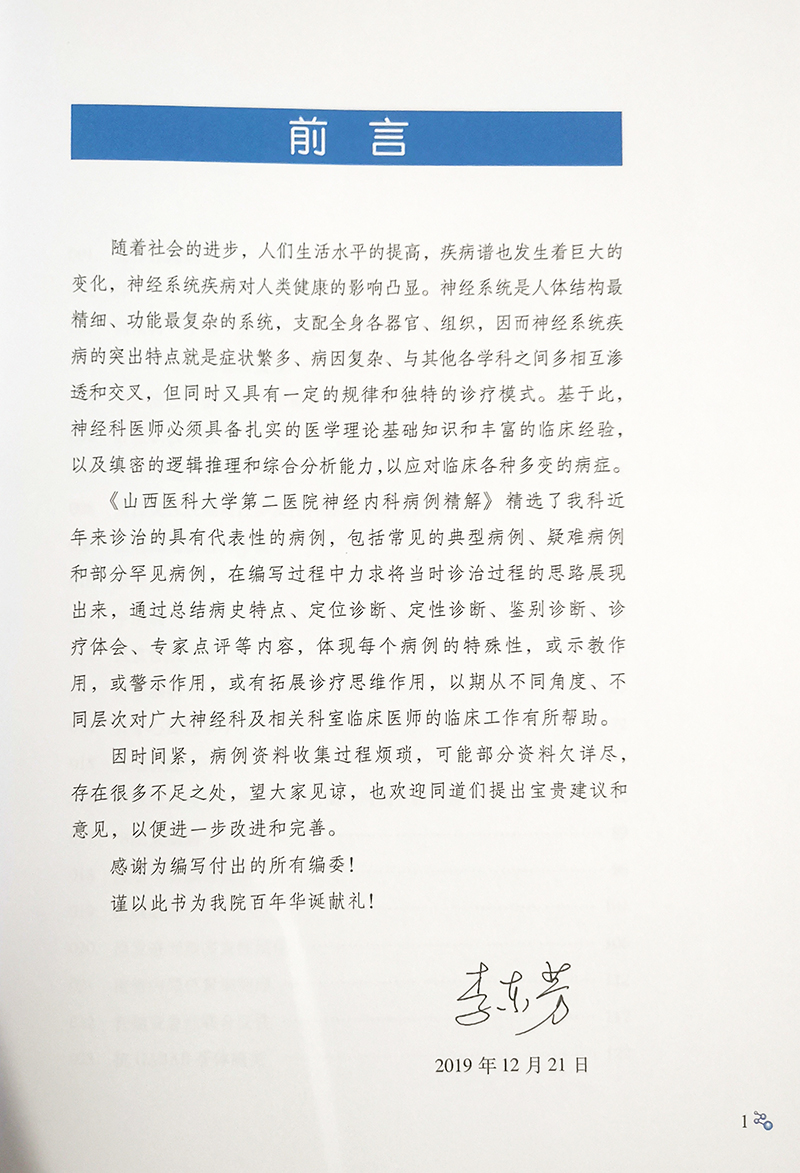 前 言
随着社会的进步，人们生活水平的提高，疾病谱也发生着巨大的
变化，神经系统疾病对人类健康的影响凸显。神经系统是人体结构最
精细、功能最复杂的系统，支配全身各器官、组织，因而神经系统疾
病的突出特点就是症状繁多、病因复杂、与其他各学科之间多相互渗
透和交叉，但同时又具有一定的规律和独特的诊疗模式。基于此，
神经科医师必须具备扎实的医学理论基础知识和丰富的临床经验，
以及缜密的逻辑推理和综合分析能力，以应对临床各种多变的病症。
《山西医科大学第二医院神经内科病例精解》精选了我科近
年来诊治的具有代表性的病例，包括常见的典型病例、疑难病例
和部分罕见病例，在编写过程中力求将当时诊治过程的思路展现
出来，通过总结病史特点、定位诊断、定性诊断、鉴别诊断、诊
疗体会、专家点评等内容，体现每个病例的特殊性，或示教作
用，或警示作用，或有拓展诊疗思维作用，以期从不同角度、不
同层次对广大神经科及相关科室临床医师的临床工作有所帮助。
因时间紧，病例资料收集过程烦琐，可能部分资料欠详尽，
存在很多不足之处，望大家见谅，也欢迎同道们提出宝贵建议和
意见，以便进一步改进和完善。
感谢为编写付出的所有编委！
谨以此书为我院百年华诞献礼！
李东芳
2019 年 12 月 21 日
1